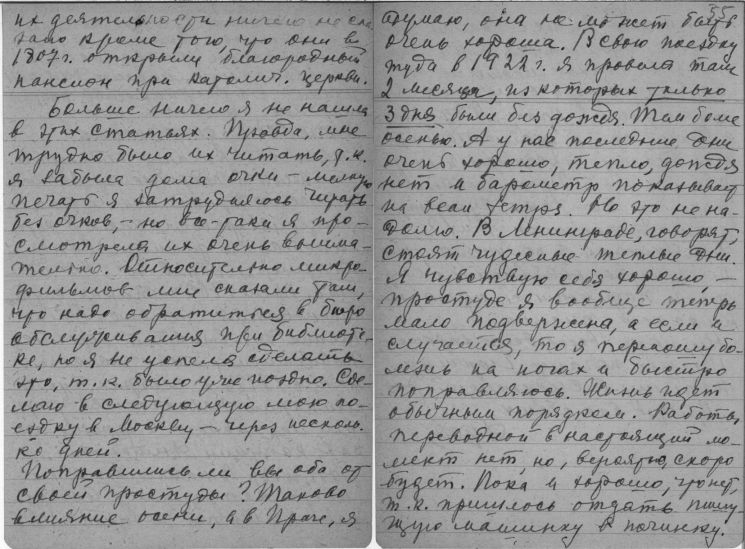 их деятельности ничего не ска-
зано кроме того, что они в
1807 г. открыли благородный
пансион при католич. церкви.
Больше ничего я не нашла
в этих статьях. Правда, мне
трудно было их читать, т.к.
я забыла дома очки – мелкую
печать я затрудняюсь читать
без очков, – но все-таки я про-
смотрела их очень внима-
тельно. Относительно микро-
фильмов мне сказали там,
что надо обратиться в бюро
обслуживания при библиоте-
ке, но я не успела сделать
это, т.к. было уже поздно. Сде-
лаю в следующую мою по-
ездку в Москву – через несколь-
ко дней.
Поправились ли вы оба от
своей простуды? Таково
влияние осени, а в Праге, я
35
думаю, она не может быть
очень хороша. В свою поездку
туда в 1922 г. я провела там
2 месяца, из которых только
3 дня были без дождя. Там было
осенью. А у нас последние дни
очень хорошо, тепло, дождя
нет и барометр показывает
на вели
Но это не на-
долго. В Ленинграде, говорят,
стоят чудесные теплые дни.
Я чувствую себя хорошо, –
простуде я вообще теперь
мало подвержена, а если и
случается, то я переношу бо-
лезнь на ногах и быстро
поправляюсь. Жизнь идет
обычным порядком. Работы
переводной в настоящий мо-
мент нет, но, вероятно, скоро
будет. Пока и хорошо, что нет,
т.к. пришлось отдать пишу-
щую машинку в починку.